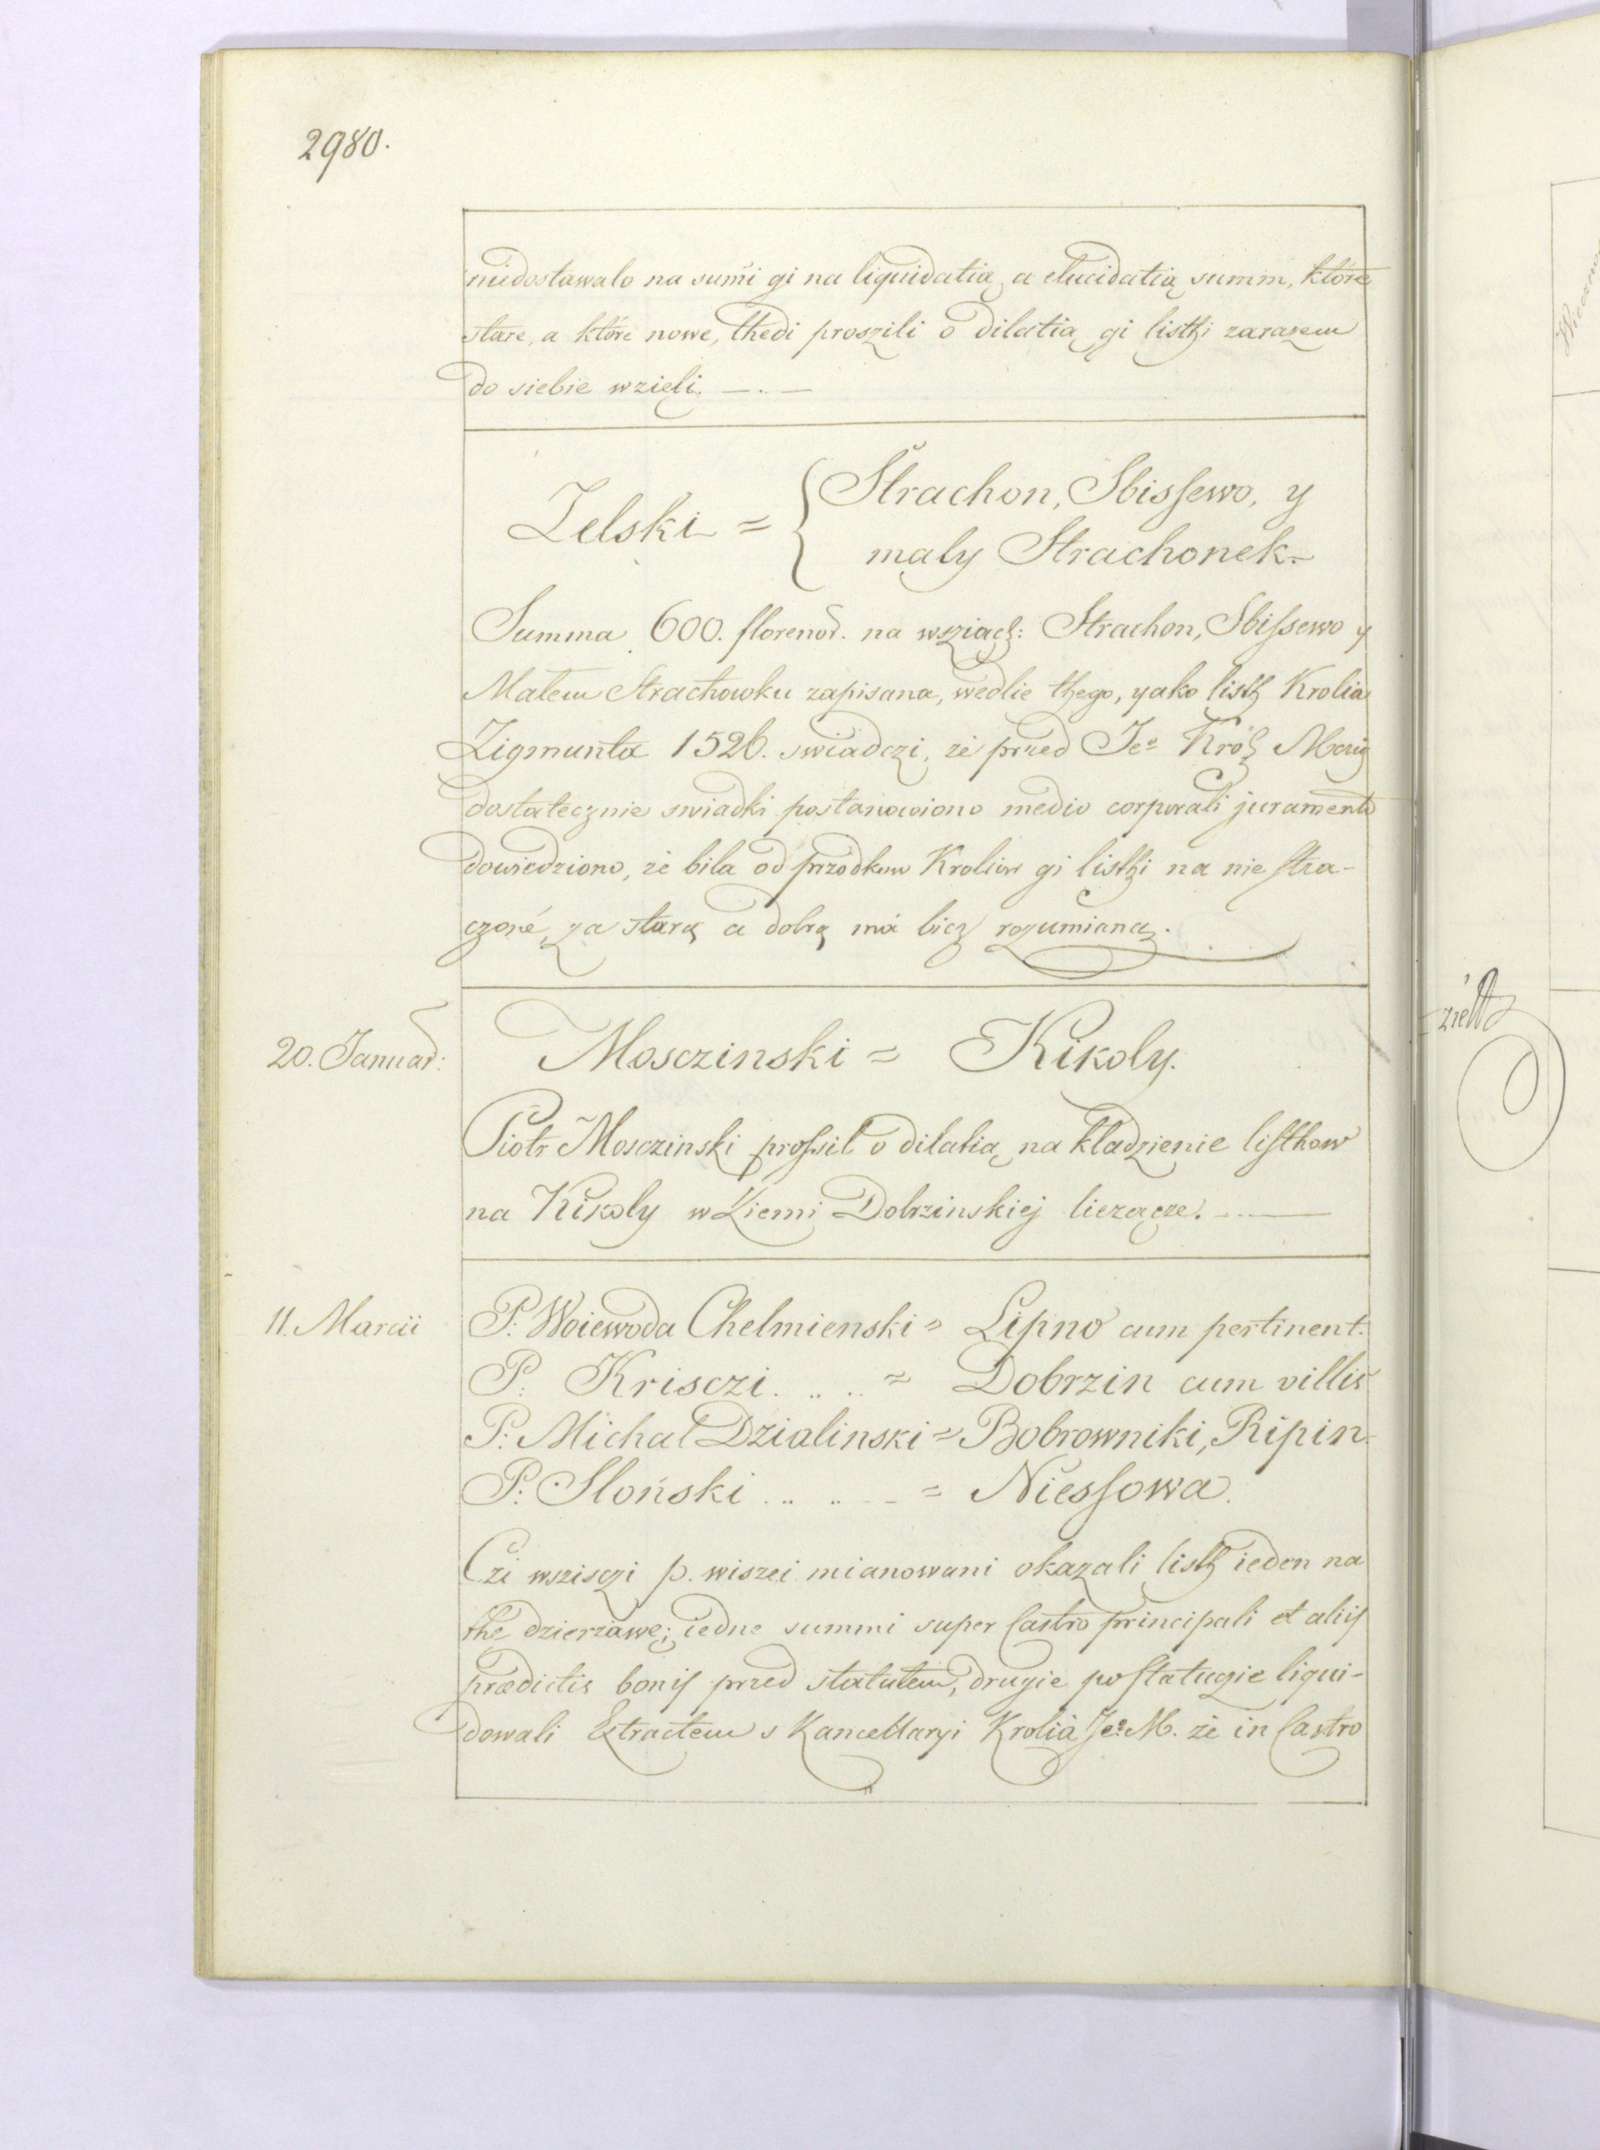 2980.
niedostawalo na sum̃i gi na liquidatią a elucidatią summ, które
stare, a które nowe, thedi proszili o dilatią gi listhi zarazem
do siebie wzięli. — . —
Zelski = { Strachon, Sbissewo, y
maly Strachonek.
Summa 600. florenor̃. na wsziach: Strachon, Sbissewo y
Malem Strachowku zapisana, wedlie thego, yako listh Krolia
Zigmunta 1526. swiadczi, że przed Jeº Król Mczią
dostatecznie swiadki postanowiono medio corporali juramento
dowiedziono, że bila od przodkow Kroliow gi listhi na nie stra-
czoné, za starą a dobrą má bicz rozumiana.
20. Januar̃:
Mosczinski = Kikoly.
Piotr Mosczinski prossil o dilatią na kladzienie listhow
na Kikoly w Ziemi Dobrzinskiej liezącze.
11. Marcii
P: Woiewoda Chelmienski = Lipno cum pertinent:
P. Krisczi. .. .. = Dobrzin cum villis
P: Michal Dzialinski = Bobrowniki, Ripin.
P: Słoński .. .. = Niessowa.
Czi wszisczi p. wiszei mianowani okazali listh ieden na
the dzierzawę; iedne summi super Castro principali et aliis
praedictis bonis przed statutem, drugie po statucie liqui-
dowali Extractem s Kancellaryi Krolia Jeº M. że in Castro
zielt